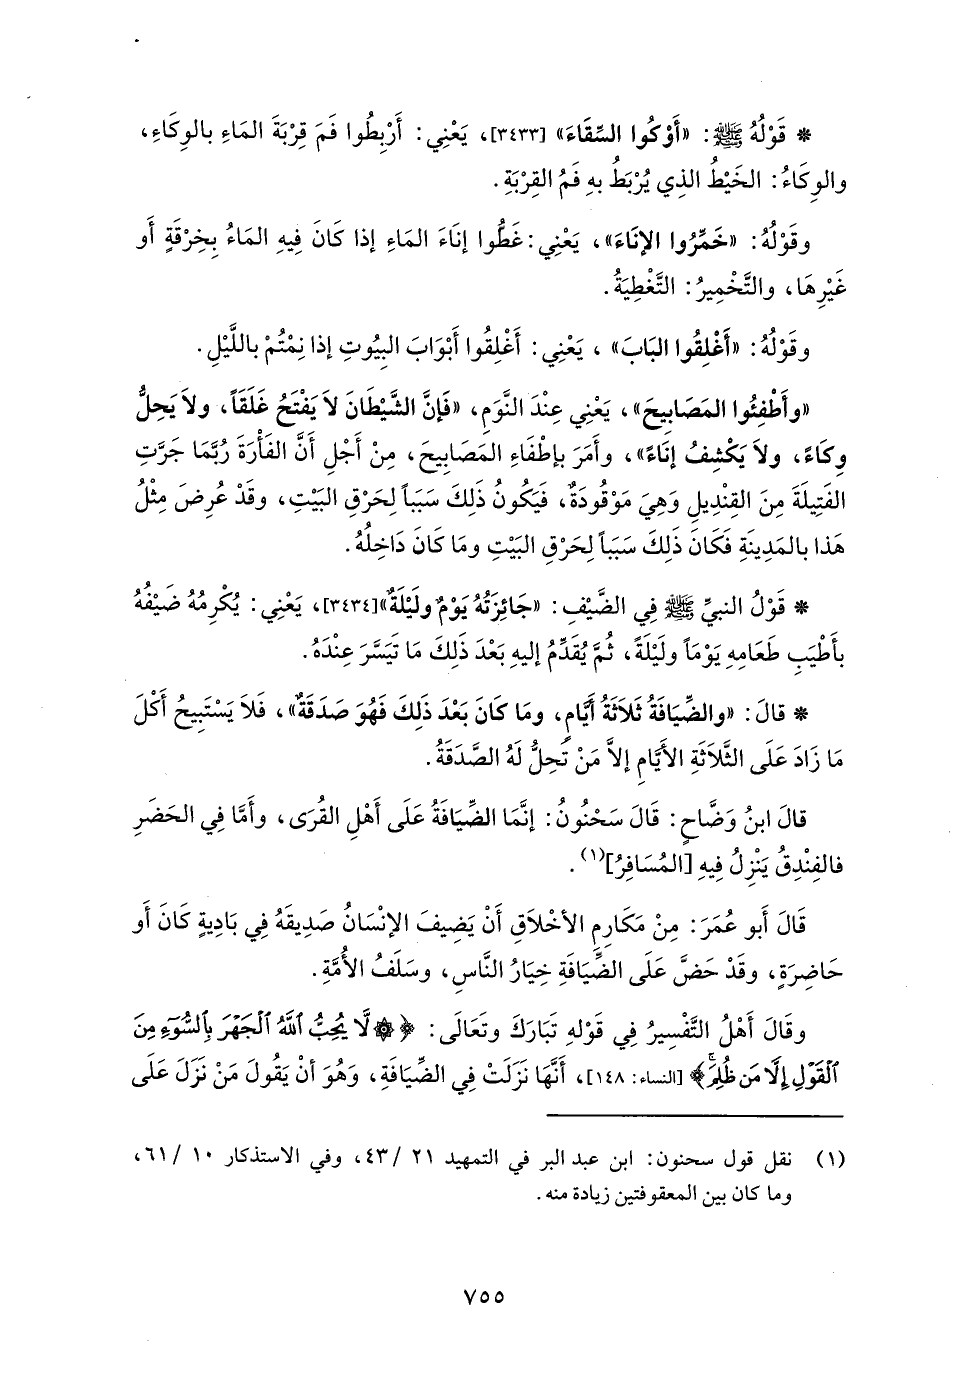 * قَوْلُهُ ﷺ: «أَوْكُوا السِّقَاءَ» [٣٤٣٣]، يَعْنِي: أَرْبِطُوا فَمَ قِرْبَةَ المَاءِ بالوِكَاءِ،
والوِكَاءُ: الخَيْطُ الذِي يُرْبَطُ بهِ فَمُ القِرْبَةِ.
وقَوْلُهُ: «خَمِّرُوا الإنَاءَ»، يَعْنِي: غَطُّوا إنَاءَ المَاءِ إذا كَانَ فِيهِ المَاءُ بِخِرْقَةٍ أَو
غَيْرِهَا، والتَّخْمِيرُ: التَّغْطِيَةُ.
وقَوْلُهُ: «أَغْلِقُوا البَابَ» ، يَعْنِي: أَغْلِقُوا أَبْوَابَ البِيُوتِ إذا نِمْتُمْ باللَّيْلِ.
«وأَطْفِئُوا المَصَابِيحَ»، يَعْنِي عِنْدَ النَّوَمِ، «فَإنَّ الشَّيْطَانَ لاَ يَفْتَحُ غَلَقَاً، ولاَ يَحِلُّ
وِكَاءً، ولاَ يَكْشِفُ إنَاءً»، وأَمَرَ بإطْفَاءِ المَصَابِيحَ، مِنْ أَجْلِ أَنَّ الفَأْرَةَ رُبَّمَا جَرَّتِ
الفَتِيلَةَ مِنَ القِنْدِيلِ وَهِيَ مَوْقُودَةٌ، فَيَكُونُ ذَلِكَ سَبَبَاً لِحَرْقِ البَيْتِ، وقَدْ عُرِضَ مِثْلُ
هَذا بالمَدِينَةِ فَكَانَ ذَلِكَ سَبَبَاً لِحَرْقِ البَيْتِ ومَا كَانَ دَاخِلُهُ.
* قَوْلُ النبيِّ ﷺ فِي الضَّيْفِ: «جَائِزَتُهُ يَوْمٌ ولَيْلَةٌ»[٣٤٣٤]، يَعْنِي: يُكْرِمُهُ ضَيْفُهُ
بأَطْيَبِ طَعَامِهِ يَوْمَاً ولَيْلَةً، ثُمَّ يُقَدِّمُ إليهِ بَعْدَ ذَلِكَ مَا تَيَسَّرَ عِنْدَهُ.
* قالَ: «والضِّيَافَةُ ثَلاَثَةُ أَيَّامٍ، ومَا كَانَ بَعْدَ ذَلِكَ فَهُوَ صَدَقَةٌ»، فَلاَ يَسْتَبِيحُ أَكْلَ
مَا زَادَ عَلَى الثَّلَاثَةِ الأَيَّامِ إلاَّ مَنْ تَحِلُّ لَهُ الصَّدَقَةُ.
قالَ ابنُ وَضَّاحٍ: قَالَ سَحْنُونُ: إنَّمَا الضِّيَافَةُ عَلَى أَهْلِ القُرَى، وأَمَّا فِي الحَضَرِ
فالفِنْدِقُ يَنْزِلُ فِيهِ [المُسَافِرُ](١).
قَالَ أَبو عُمَرَ: مِنْ مَكَارِمِ الأَخْلاَقِ أَنْ يَضِيفَ الإنْسَانُ صَدِيقَهُ فِي بَادِيةٍ كَانَ أَو
حَاضِرَةٍ، وقَدْ حَضَّ عَلَى الضِّيَافَةِ خِيَارُ النَّاسِ، وسَلَفُ الأُمَّةِ.
وقَالَ أَهْلُ التَّفْسِيرُ فِي قَوْلهِ تَبَارَكَ وتَعَالَى: ﴿۞ لَّا يُحِبُّ ٱللَّهُ ٱلْجَهْرَ بِٱلسُّوٓءِ مِنَ
ٱلْقَوْلِ إِلَّا مَن ظُلِمَۚ﴾ [النساء: ١٤٨]، أَنَّهَا نَزَلَتْ فِي الضِّيَافَةِ، وَهُوَ أنْ يَقُولَ مَنْ نَزَلَ عَلَى
(١) نقل قول سحنون: ابن عبد البر في التمهيد ٢١ /٤٣، وفي الاستذكار ١٠ /٦١،
وما كان بين المعقوفتين زيادة منه.
٧٥٥